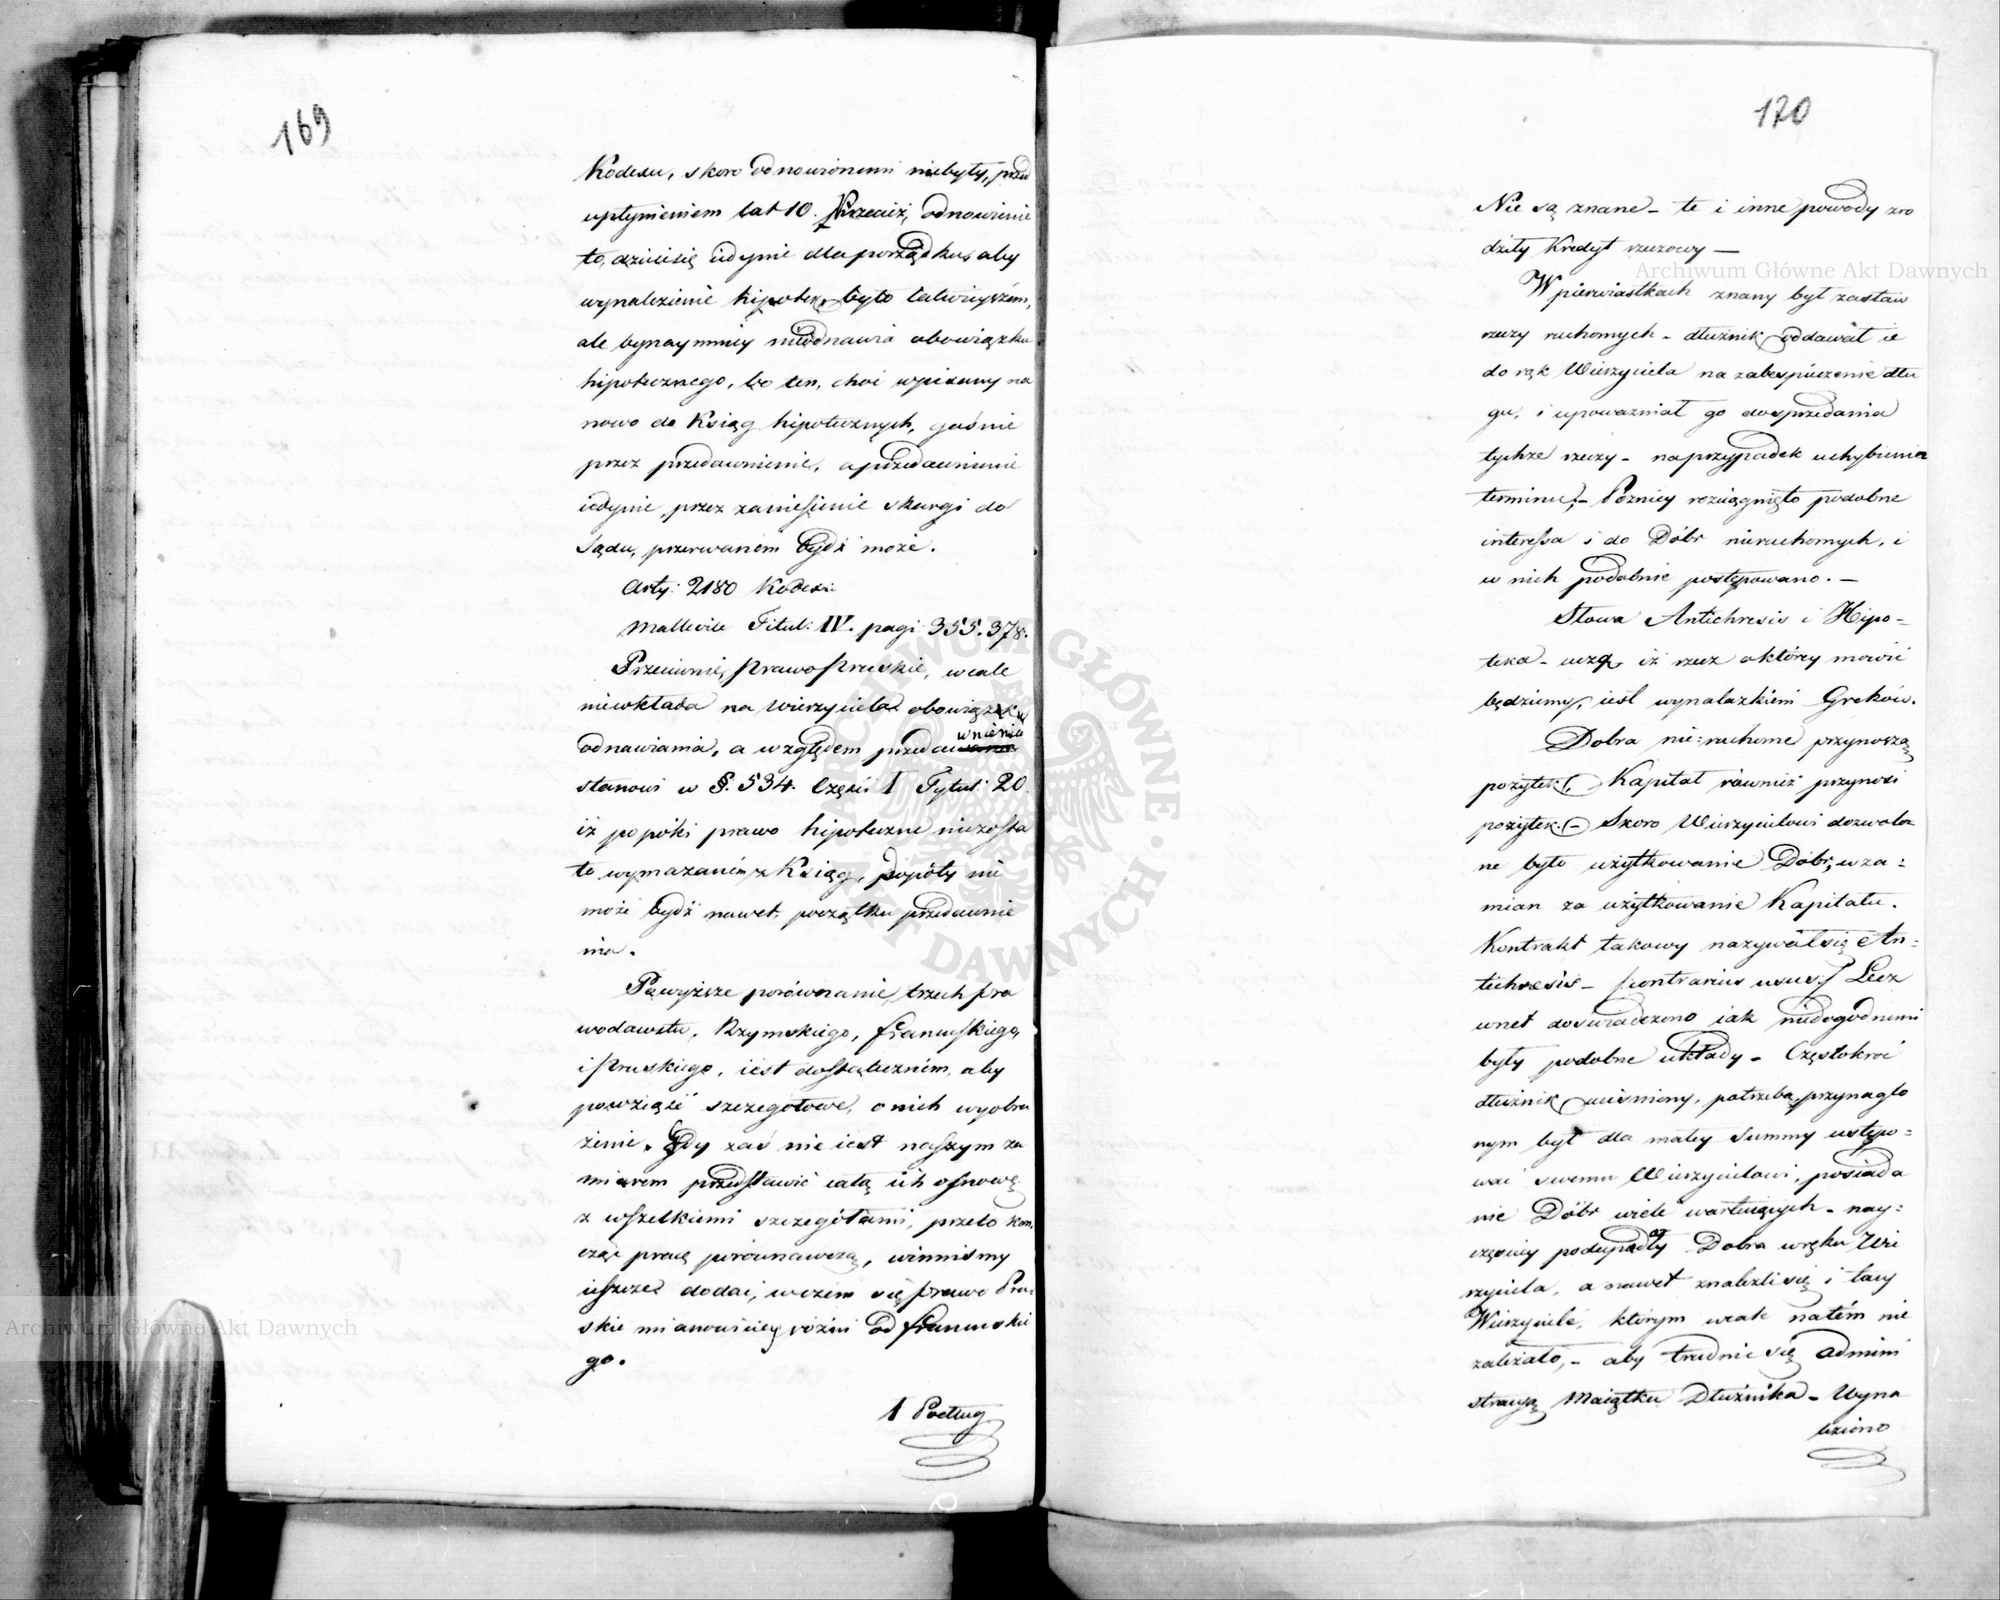 169
Kodexu, skoro odnowionemi niebyły, przed
upłynieniem lat 10. Przecież, odnowienie
to, dzieie się iedynie dla porządku, aby
wynalezienie hipotek, było łatwieyszem,
ale bynaymniey nieodnawia obowiązku
hipotecznego, bo ten, choć wpisany na
nowo do Ksiąg hipotecznych, gaśnie
przez przedawnienie, a przedawnienie
iedynie, przez zaniesienie skargi do
Sądu, przerwanem bydź może.
Arty: 2180 Kodexu
Malleville Titul: IV. pagi 355. 378.
Przeciwnie, Prawo Pruskie, wcale
niewkłada na Wierzyciela obowiązku
odnawiania, a względem przedawnienia
stanowi w §. 534. Części I Tytuł: 20.
iż popóki prawo hipoteczne niezosta
ło wymazaném z Ksiąg, popóty nie
może bydź nawet, początku przedawnie
nia.
Powyższe porównanie, trzech pra
wodawstw, Rzymskiego, francuskiego,
i Pruskiego, iest dostateczném, aby
powziąść szczegółowe, o nich wyobra
żenie. Gdy zaś nie iest naszym za
miarem przedstawić całą ich osnowę
z wszelkiemi szczegółami, przeto koń
cząc pracę porównawczą, winniśmy
ieszcze dodać, w czém się prawo Pru
skie mianowiciey różni od francuskie
go.
1 Podług
170
Nie są znane – te i inne powody zro
dziły Kredyt rzeczowy —
W pierwiastkach znany był zastaw
rzeczy ruchomych – dłużnik oddawał ie
do rąk Wierzyciela na zabespieczenie dłu
gu, i upoważniał go do sprzedania
tychże rzeczy – na przypadek uchybienia
terminu, – Pozniey rozciągnięto podobne
interessa i do Dóbr nieruchomych, i
w nich podobnie postępowano. —
Słowa Antichresis i Hipo-
teka – uczą, iż rzecz o którey mówić
będziemy, iest wynalazkiem Greków.
Dobra nie:ruchome przynoszą
pożytek, Kapitał również przynosi
pożytek. – Skoro Wierzycielowi dozwolo
ne było użytkowanie Dóbr, w za:
mian za użytkowanie Kapitału.
Kontrakt takowy nazywał się An:
tichresis – /contrarius usus/ Lecz
wnet doswiadczono iak niedogodnemi
były podobne układy – Częstokroć
dłużnik uciśniony, potrzebą, przynaglo
nym był dla małey Summy ustępo:
wać swemu Wierzycielowi, posiada
nie Dóbr wiele wartuiących – nay:
częściey podupadały Dobra w ręku Wie
rzyciela, a nawet znaleźli się i tacy
Wierzyciele, którym wcale natém nie
zależało, – aby trudnić się admini
stracyą Maiątku Dłużnika – Wyna
leziono
Archiwum Główne Akt Dawnych
Archiwum Główne Akt Dawnych
ARCHIWUM GŁÓWNE AKT DAWNYCH